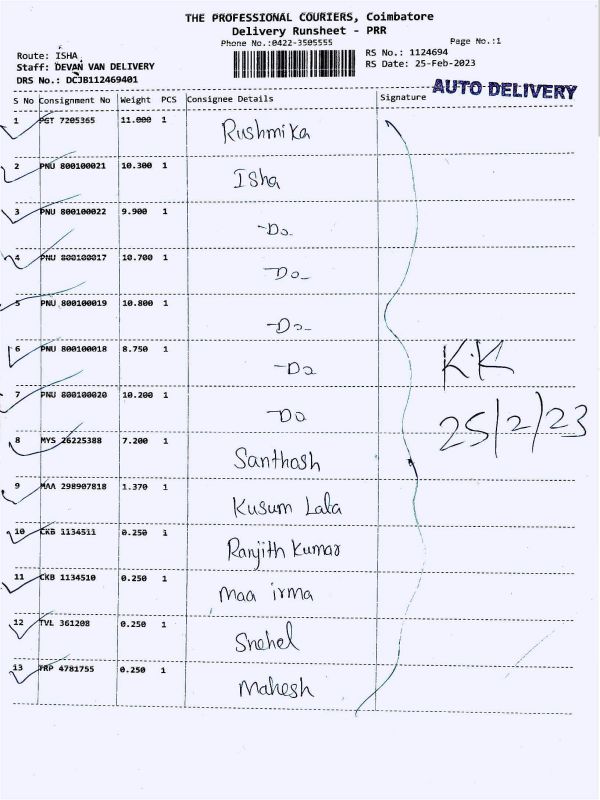 THE PROFESSIONAL COURIERS, Coimbatore
Delivery Runsheet - PRR
Phone No.:0422-3505555
Page No.:1
Route: ISHA
RS No.: 1124694
Staff: DEVAN VAN DELIVERY
RS Date: 25-Feb-2023
DRS No.: DCJB112469401
AUTO DELIVERY
S No Consignment No Weight PCS Consignee Details Signature
1 PGT 7205365 11.000 1 Rushmika
2 PNU 800100021 10.300 1 Isha
3 PNU 800100022 9.900 1 -Do-
4 PNU 800100017 10.700 1 -Do-
5 PNU 800100019 10.800 1 -Do-
6 PNU 800100018 8.750 1 -Do
7 PNU 800100020 10.200 1 -Do
K.K
25/2/23
8 MYS 26225388 7.200 1 Santhosh
9 MAA 298907818 1.370 1 Kusum Lala
10 CKB 1134511 0.250 1 Ranjith Kumar
11 CKB 1134510 0.250 1 Maa irma
12 TVL 361208 0.250 1 Snehel
13 TRP 4781755 0.250 1 Mahesh